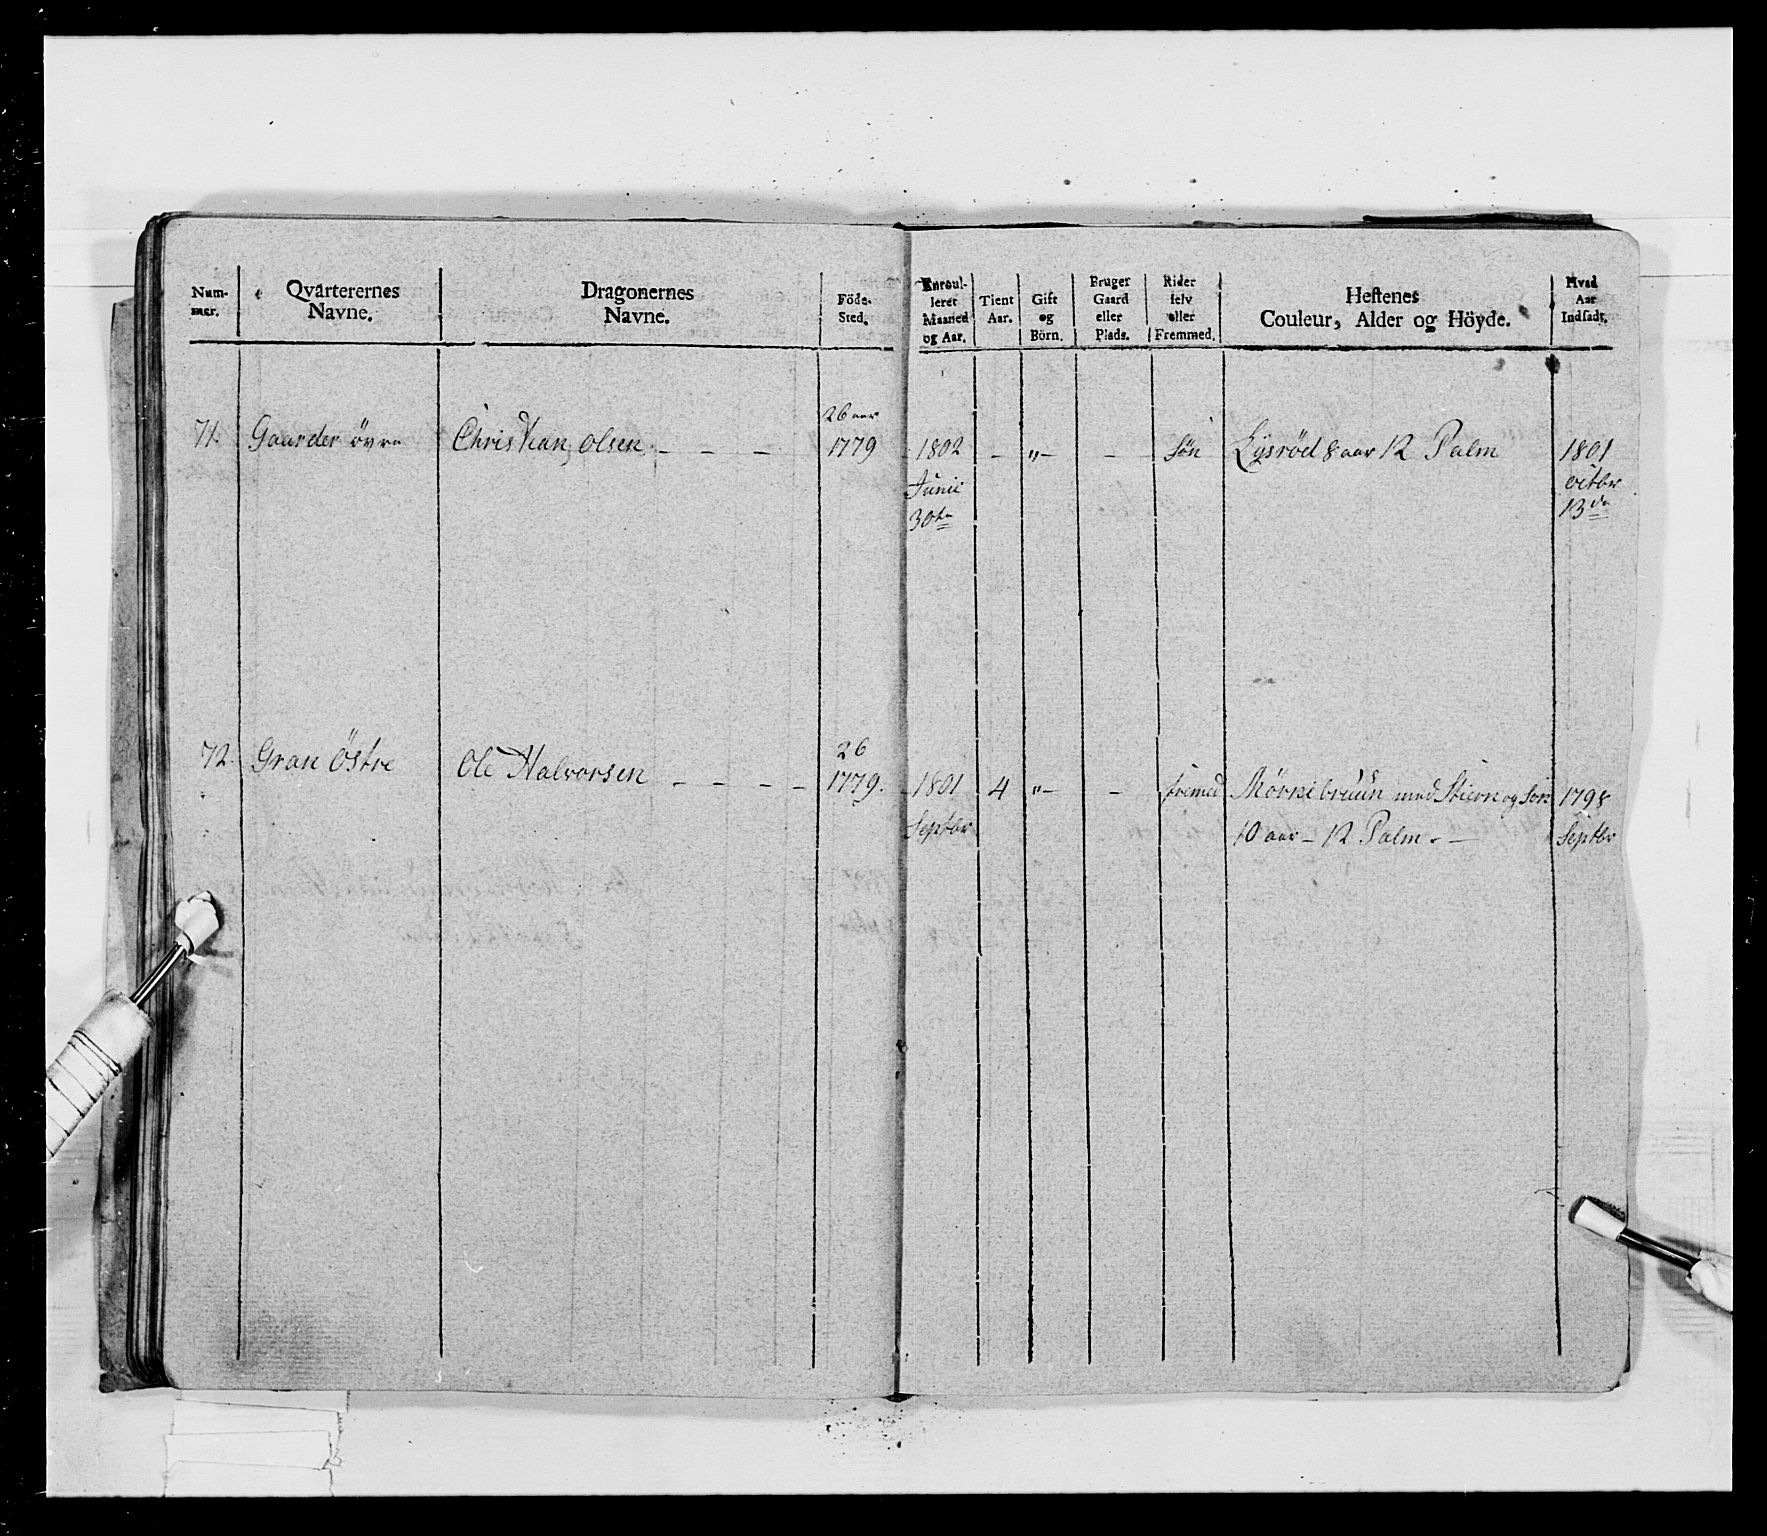 Num-
mer.
Qvarterernes
Navne.
Dragonernes
Navne.
Föde-
Sted.
Enroul-
leret
Maaned
og Aar.
Tient
Aar.
Gift
og
Börn.
Bruger
Gaard
eller
Plads.
Rider
selv
eller
Fremmed.
Hestenes
Couleur, Alder og Höyde.
Hvad
Aar
Indsadt.
71. Gaarder övre Christian Olsen - - - 26 aar
1779
1802
Junii
30te
- „- - Søn Lysrød 8 aar 12 Palm
1801
octbr
13de
72. Gran Östre Ole Halvorsen - - - - 26
1779.
1801
Septbr
4 „- - fremed Mørkebruun med Stiern og Sn
10 aar - 12 Palm. -
1798
Septbr